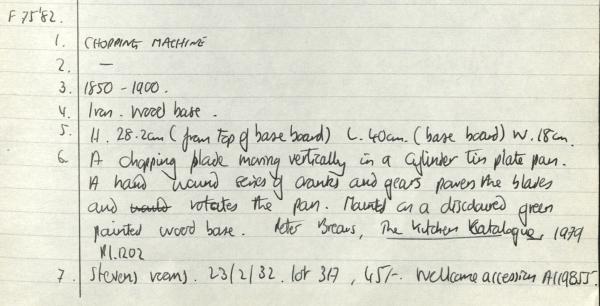 F 75'82.
1. CHOPPING MACHINE
2. —
3. 1850 - 1900.
4. Iron. Wood base.
5. H. 28.2cm (from top of base board) L. 40cm. (base board) W. 18cm.
6. A chopping blade moving vertically in a cylinder tin plate pan.
A hand wound series of cranks and gears powers the blades
and rotates the pan. Mounted on a discoloured green
painted wood base. Peter Brears, The Kitchen Catalogue, 1979
Pl. 1202
7. Stevens rooms. 23/2/32. lot 317, 45/-. Wellcome accession A119855.